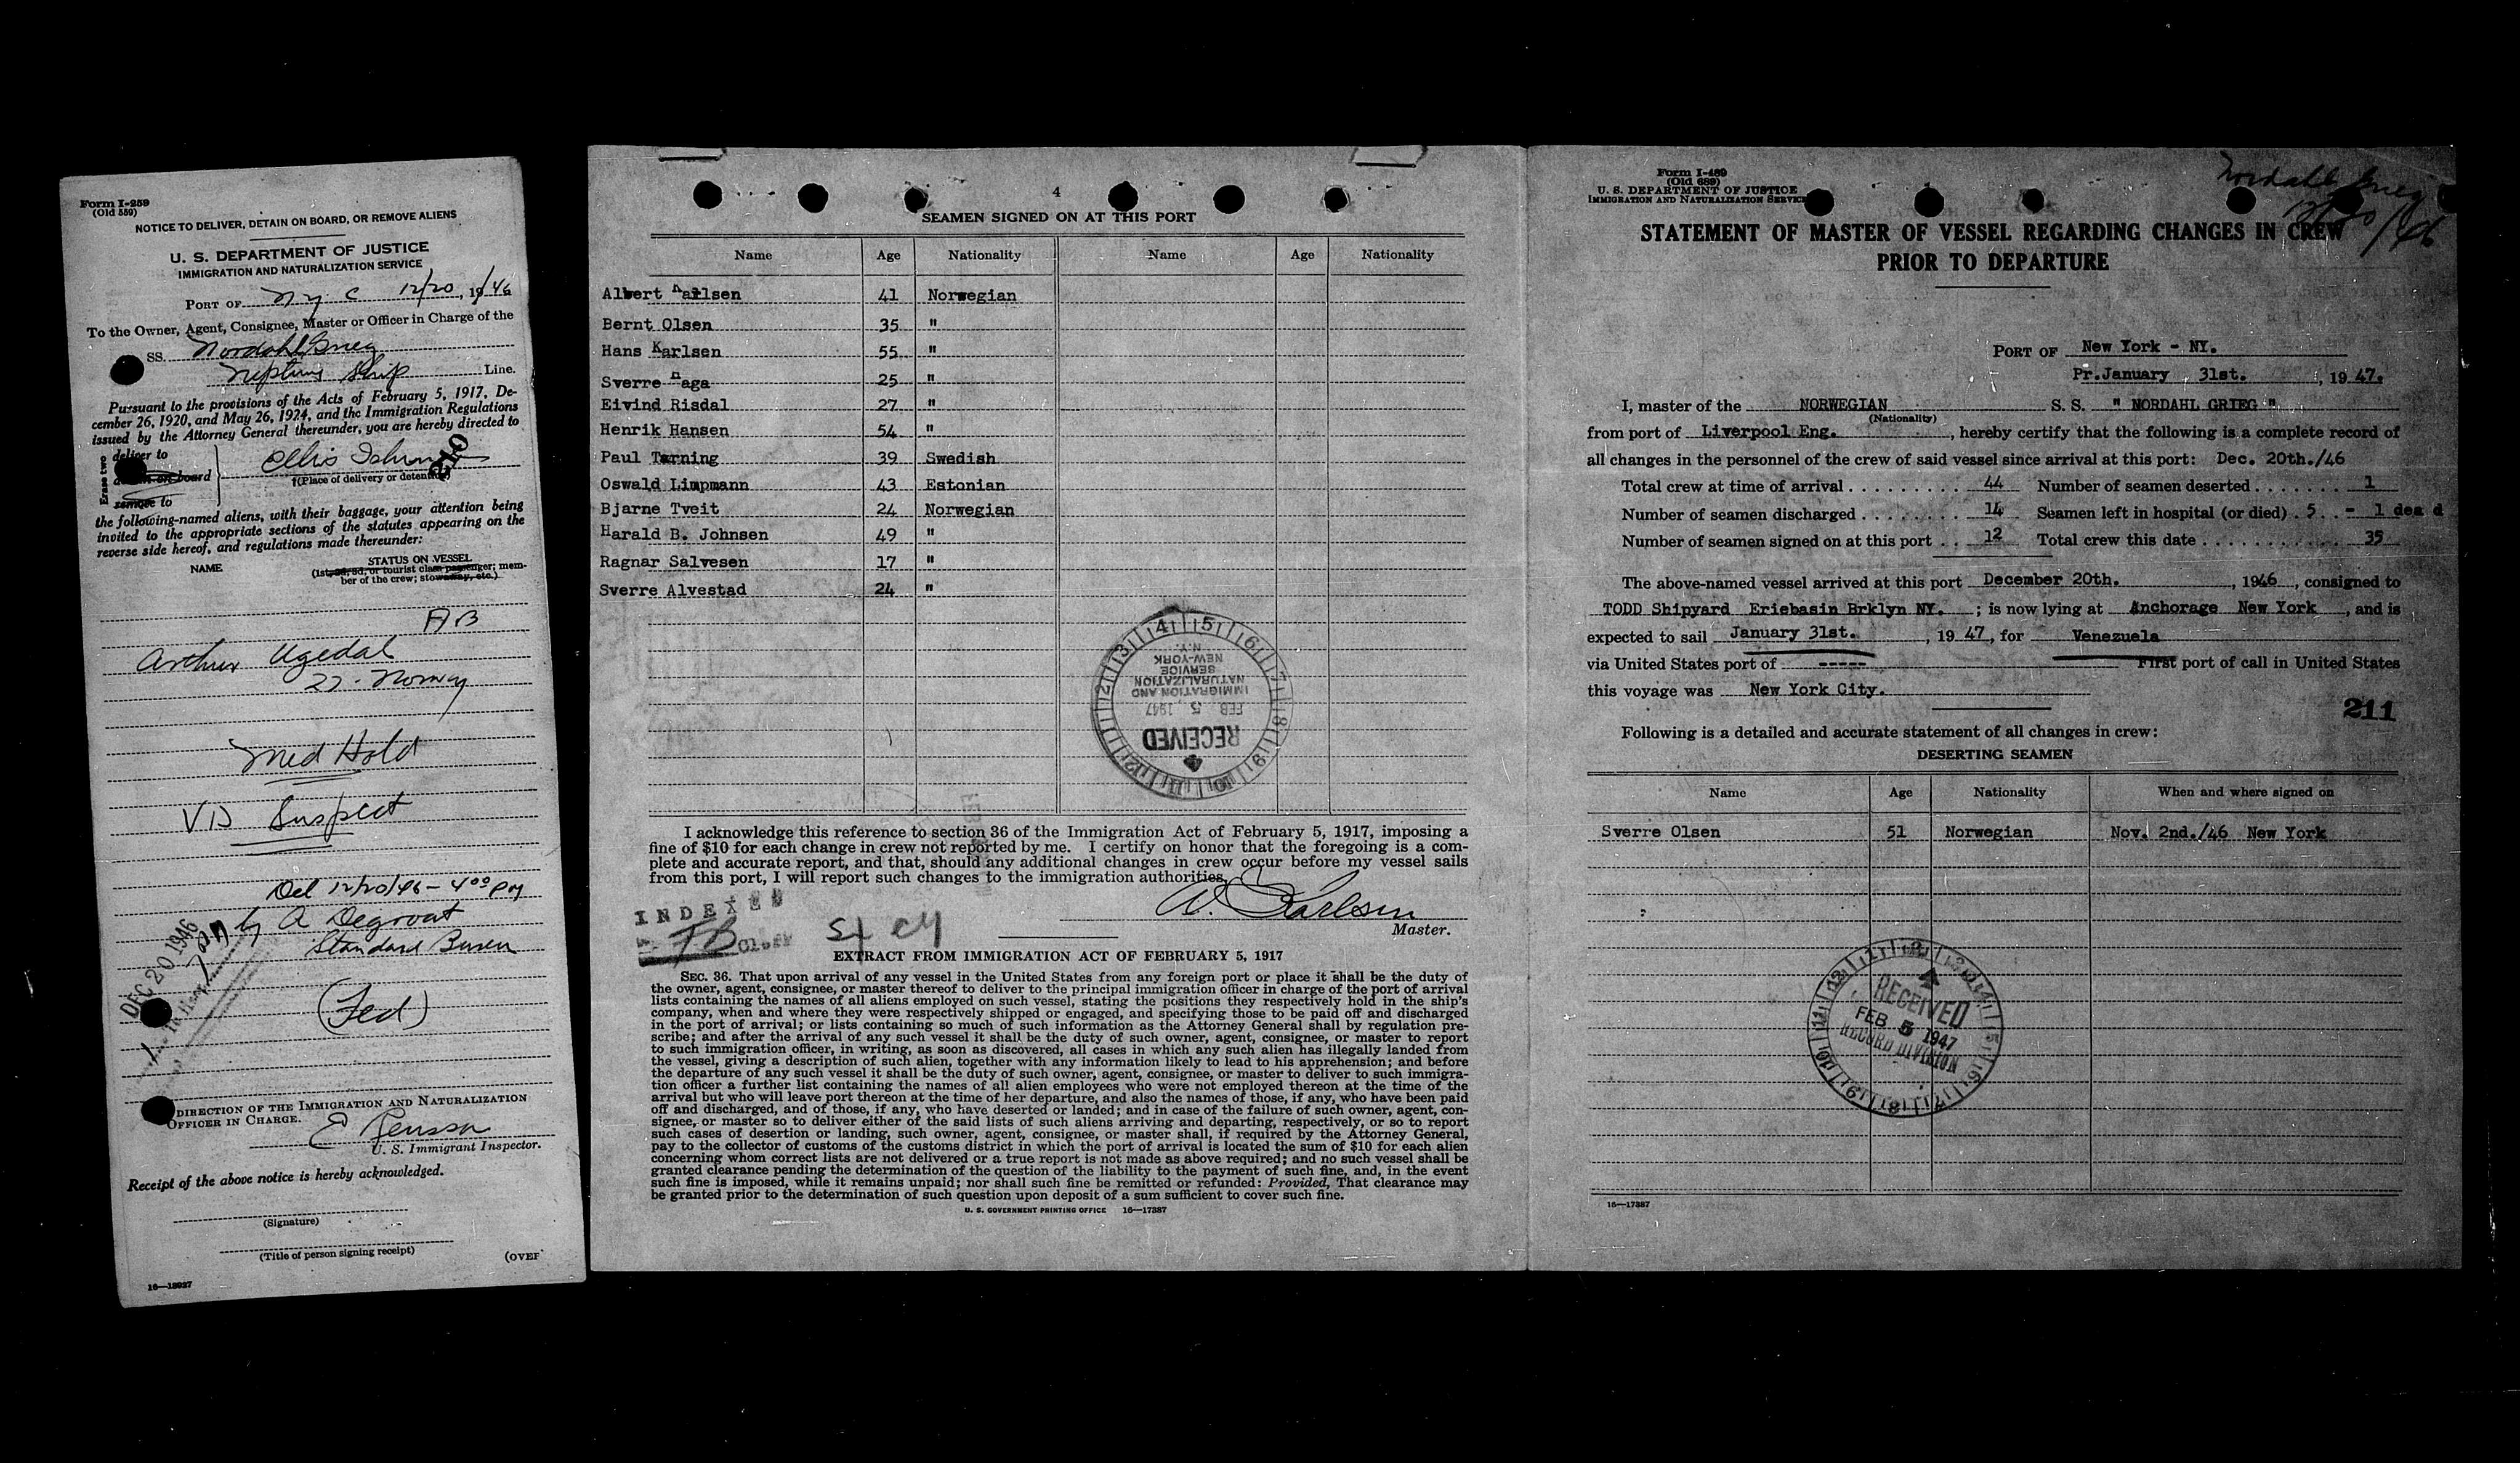 Form I-259
(Old 559)
NOTICE TO DELIVER, DETAIN ON BOARD, OR REMOVE ALIENS
U. S. DEPARTMENT OF JUSTICE
IMMIGRATION AND NATURALIZATION SERVICE
PORT OF N Y C 12/20, 19/46
To the Owner, Agent, Consignee, Master or Officer in Charge of the
SS. Nordahl Grieg
Neptune Ship Line.
Pursuant to the provisions of the Acts of February 5, 1917, De-
cember 26, 1920, and May 26, 1924, and the Immigration Regulations
issued by the Attorney General thereunder, you are hereby directed to
Erase two
deliver to
detain on board
remove to
Ellis Island
210
†(Place of delivery or detention)
the following-named aliens, with their baggage, your attention being
invited to the appropriate sections of the statutes appearing on the
reverse side hereof, and regulations made thereunder:
NAME
STATUS ON VESSEL
(1st, 2d, 3d, or tourist class passenger; mem-
ber of the crew; stowaway, etc.)
AB
Arthur Ugedal
27 - Norway
Med Hold
VD Suspect
Del 12/20/46 - 4 00 PM
by A Degroat
Standard Buren
DEC 20 1946
(Fed)
DIRECTION OF THE IMMIGRATION AND NATURALIZATION
OFFICER IN CHARGE.
U. S. Immigrant Inspector.
Receipt of the above notice is hereby acknowledged.
(Signature)
(Title of person signing receipt)
(OVER
16—18937
4
SEAMEN SIGNED ON AT THIS PORT
Name Age Nationality Name Age Nationality
Albert Karlsen 41 Norwegian
Bernt Olsen 35 "
Hans Karlsen 55 "
Sverre Haga 25 "
Eivind Risdal 27 "
Henrik Hansen 54 "
Paul Tarning 39 Swedish
Oswald Limpmann 43 Estonian
Bjarne Tveit 24 Norwegian
Harald B. Johnsen 49 "
Ragnar Salvesen 17 "
Sverre Alvestad 24 "
RECEIVED
FEB 5 1947
IMMIGRATION AND
NATURALIZATION
SERVICE
NEW-YORK
N.Y.
I acknowledge this reference to section 36 of the Immigration Act of February 5, 1917, imposing a
fine of $10 for each change in crew not reported by me. I certify on honor that the foregoing is a com-
plete and accurate report, and that, should any additional changes in crew occur before my vessel sails
from this port, I will report such changes to the immigration authorities.
INDEXED
Clerk
Master.
EXTRACT FROM IMMIGRATION ACT OF FEBRUARY 5, 1917
SEC. 36. That upon arrival of any vessel in the United States from any foreign port or place it shall be the duty of
the owner, agent, consignee, or master thereof to deliver to the principal immigration officer in charge of the port of arrival
lists containing the names of all aliens employed on such vessel, stating the positions they respectively hold in the ship's
company, when and where they were respectively shipped or engaged, and specifying those to be paid off and discharged
in the port of arrival; or lists containing so much of such information as the Attorney General shall by regulation pre-
scribe; and after the arrival of any such vessel it shall be the duty of such owner, agent, consignee, or master to report
to such immigration officer, in writing, as soon as discovered, all cases in which any such alien has illegally landed from
the vessel, giving a description of such alien, together with any information likely to lead to his apprehension; and before
the departure of any such vessel it shall be the duty of such owner, agent, consignee, or master to deliver to such immigra-
tion officer a further list containing the names of all alien employees who were not employed thereon at the time of the
arrival but who will leave port thereon at the time of her departure, and also the names of those, if any, who have been paid
off and discharged, and of those, if any, who have deserted or landed; and in case of the failure of such owner, agent, con-
signee, or master so to deliver either of the said lists of such aliens arriving and departing, respectively, or so to report
such cases of desertion or landing, such owner, agent, consignee, or master shall, if required by the Attorney General,
pay to the collector of customs of the customs district in which the port of arrival is located the sum of $10 for each alien
concerning whom correct lists are not delivered or a true report is not made as above required; and no such vessel shall be
granted clearance pending the determination of the question of the liability to the payment of such fine, and, in the event
such fine is imposed, while it remains unpaid; nor shall such fine be remitted or refunded: Provided, That clearance may
be granted prior to the determination of such question upon deposit of a sum sufficient to cover such fine.
U. S. GOVERNMENT PRINTING OFFICE 16—17387
Form I-489
(Old 689)
U. S. DEPARTMENT OF JUSTICE
IMMIGRATION AND NATURALIZATION SERVICE
Nordahl Grieg
STATEMENT OF MASTER OF VESSEL REGARDING CHANGES IN CREW
PRIOR TO DEPARTURE
PORT OF New York - NY.
Pr. January 31st. , 19 47.
I, master of the NORWEGIAN S. S. " NORDAHL GRIEG "
(Nationality)
from port of Liverpool Eng. , hereby certify that the following is a complete record of
all changes in the personnel of the crew of said vessel since arrival at this port: Dec. 20th./46
Total crew at time of arrival 44 Number of seamen deserted 1
Number of seamen discharged 14 Seamen left in hospital (or died) 5 - 1 dead
Number of seamen signed on at this port 12 Total crew this date 35
The above-named vessel arrived at this port December 20th. , 1946 , consigned to
TODD Shipyard Eriebasin Brklyn NY. ; is now lying at Anchorage New York , and is
expected to sail January 31st. , 19 47 , for Venezuela
via United States port of ----- First port of call in United States
this voyage was New York City.
211
Following is a detailed and accurate statement of all changes in crew:
DESERTING SEAMEN
Name Age Nationality When and where signed on
Sverre Olsen 51 Norwegian Nov. 2nd./46 New York
RECEIVED
FEB 5 1947
RECORD DIVISION
16—17387